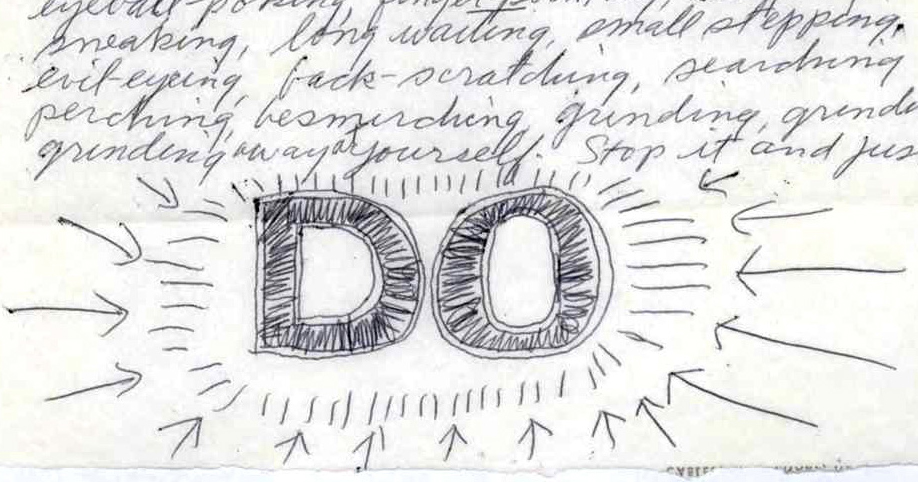 eyeball-poking, finger
sneaking, long waiting, small stepping,
evil-eyeing, back-scratching, searching
perching, besmirching, grinding, grind
grinding away at yourself. Stop it and jus
DO